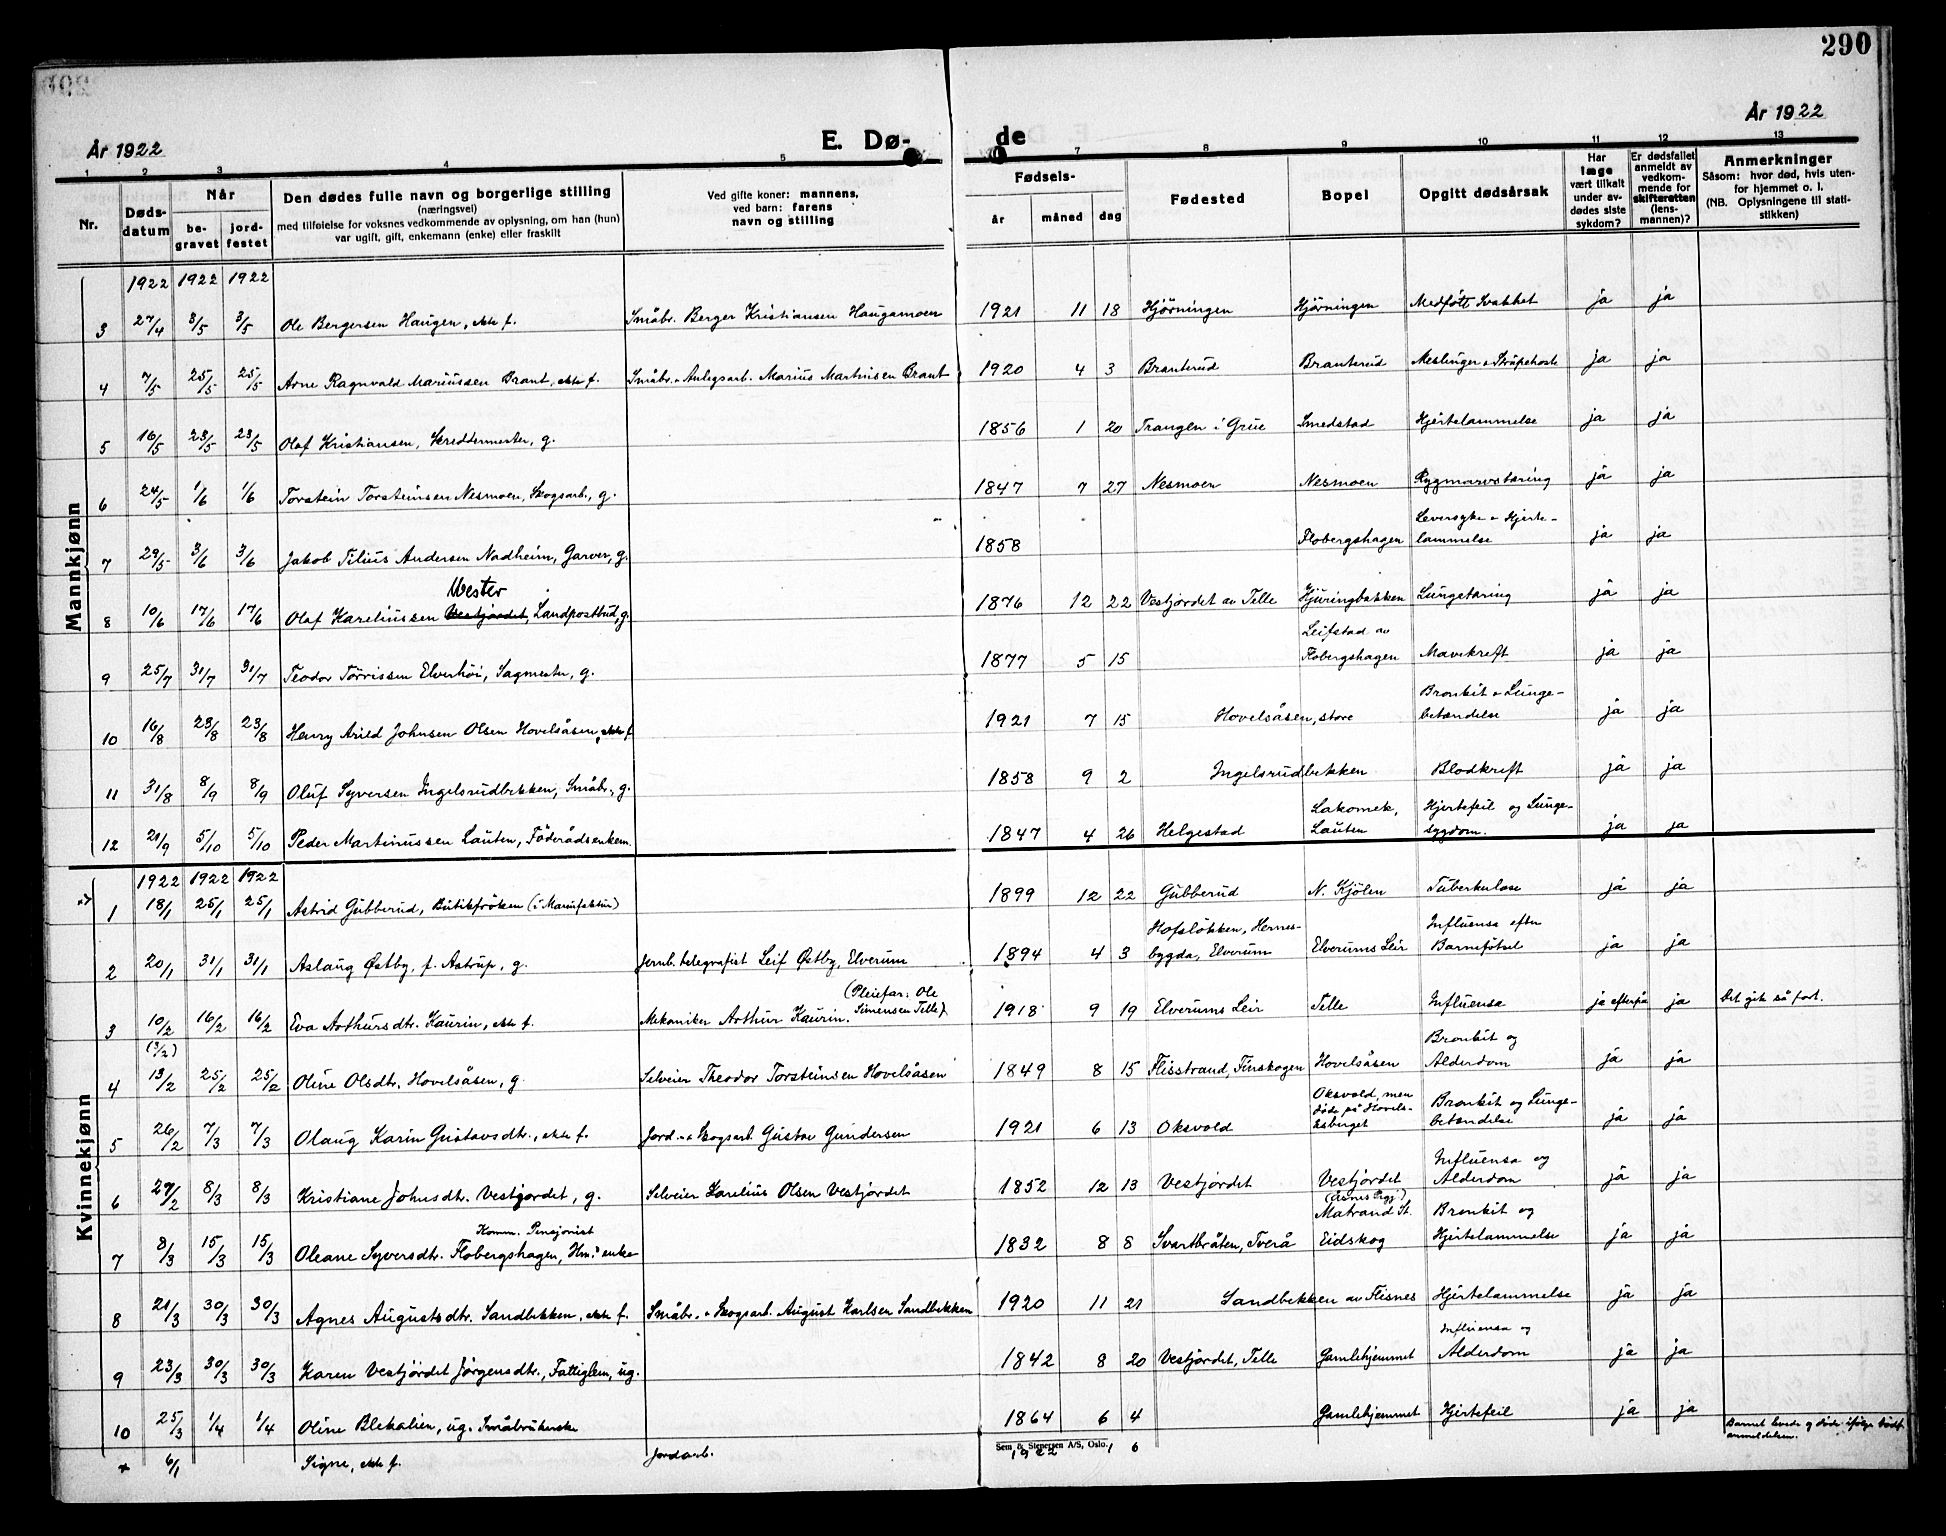 290
År 1922
E. Dø-
de
År 1922
1 2 3 4 5 7 8 9 10 11 12 13
Nr.
Døds-
datum
Når
be-
gravet
jord-
festet
Den dødes fulle navn og borgerlige stilling
(næringsvei)
med tilføielse for voksnes vedkommende av oplysning, om han (hun)
var ugift, gift, enkemann (enke) eller fraskilt
Ved gifte koner: mannens,
ved barn: farens
navn og stilling
Fødsels-
år måned dag
Fødested
Bopel
Opgitt dødsårsak
Har
læge
vært tilkalt
under av-
dødes siste
sykdom?
Er dødsfallet
anmeldt av
vedkom-
mende for
skifteretten
(lens-
mannen)?
Anmerkninger
Såsom: hvor død, hvis uten-
for hjemmet o. l.
(NB. Oplysningene til stati-
stikken)
Mannkjønn
1922 1922 1922
3 27/4 3/5 3/5 Ole Bergersen Haugen, ekte f. Småbr. Berger Kristiansen Haugamoen 1921 11 18 Hjörningen Hjörningen Medfött Svakhet ja ja
4 7/5 25/5 25/5 Arne Ragnvald Mariussen Brant, ekte f. Småbr. & Anlegsarb. Marius Martinsen Brant 1920 4 3 Branterud Branterud Meslinger & Strupehoste ja ja
5 16/5 23/5 23/5 Olaf Kristiansen, Skreddermester, g. 1856 1 20 Trangen i Grue Smedstad Hjertelammelse ja ja
6 24/5 1/6 1/6 Torstein Torsteinsen Nesmoen, Skogsarb., g. 1847 7 27 Nesmoen Nesmoen Rygmarvstæring ja ja
Leversyke & Hjerte-
7 29/5 3/6 3/6 Jakob Tilius Andersen Nadheim, Garver, g. 1858 Flobergshagen lammelse ja ja
Vester
8 10/6 17/6 17/6 Olaf Kareliussen Vestjordet, Landpostbud, g. 1876 12 22 Vestjordet av Telle Hjuringbakken Lungetæring ja ja
Leifstad av
9 25/7 31/7 31/7 Teodor Törrissen Elverhöi, Sagmester, g. 1877 5 15 Flobergshagen Mavekreft ja ja
Bronkit & Lunge-
10 16/8 23/8 23/8 Henry Arild Johnsen Olsen Hovelsåsen, ekte f 1921 7 15 Hovelsåsen, store betændelse ja ja
11 31/8 8/9 8/9 Oluf Syversen Ingelsrudbekken, Småbr., g. 1858 9 2 Ingelsrudbekken Blodkreft ja ja
Lakomek, Hjertefeil og Lunge-
12 21/9 5/10 5/10 Peder Martinussen Lauten, Föderådsenkem. 1847 4 26 Helgestad Lauten sygdom. ja ja
Kvinnekjønn
1922 1922 1922
1 18/1 25/1 25/1 Astrid Gubberud, Butikfröken (i Manufaktur) 1899 12 22 Gubberud N. Kjölen Tuberkulose ja ja
Hofslökken, Hernes- Influensa efter
2 20/1 31/1 31/1 Aslaug Østby, f. Astrup, g. Jernb. telegrafist Leif Østby, Elverum 1894 4 3 bygda, Elverum Elverums Leir Barnefötsel ja ja
(Pleiefar: Ole
Simensen Telle)
3 10/2 16/2 16/2 Eva Arthursdtr. Kaurin, ekte f. Mekaniker Arthur Kaurin. 1918 9 19 Elverums Leir Telle Influensa ja efterpå ja Det gik så fort.
(3/2) Bronkit og
4 13/2 25/2 25/2 Oline Olsdtr. Hovelsåsen, g. Selveier Theodor Torsteinsen Hovelsåsen 1849 8 15 Flisstrand, Finskogen Hovelsåsen Alderdom ja ja
Oksvold, men
döde på Hovels-
åsberget
Bronkit og Lunge-
betændelse
5 26/2 7/3 7/3 Olaug Karin Gustavsdtr., ekte f. Jord- & Skogsarb. Gustav Gundersen 1921 6 13 Oksvold ja ja
Influensa og
6 27/2 8/3 8/3 Kristiane Johnsdtr. Vestjordet, g. Selveier Karelius Olsen Vestjordet 1852 12 13 Vestjordet Vestjordet Alderdom ja ja
Matrand St. Bronkit og
Komm. Pensjonist
7 8/3 15/3 15/3 Oleane Syversdtr. Flobergshagen, Hm. enke 1832 8 8 Svartbråten, Tverå Eidskog Hjertelammelse ja ja
8 21/3 30/3 30/3 Agnes Augustsdtr. Sandbekken, ekte f. Småbr. & Skogsarb. August Karlsen Sandbekken 1920 11 21 Sandbekken av Flisnes Hjertelammelse ja ja
Influensa og
9 23/3 30/3 30/3 Karen Vestjördet Jörgensdtr., Fattiglem, ug. 1842 8 20 Vestjordet, Telle Gamlehjemmet Alderdom ja ja
10 25/3 1/4 1/4 Oline Blekalien, ug. Småbrukerske 1864 6 4 Gamlehjemmet Hjertefeil ja ja
Barnet levde og döde ifölge dödf.
anmeldelsen.
Sem & Stenersen A/S, Oslo.
6/1 Signe, ekte f. Jordarb. 1922 1 6